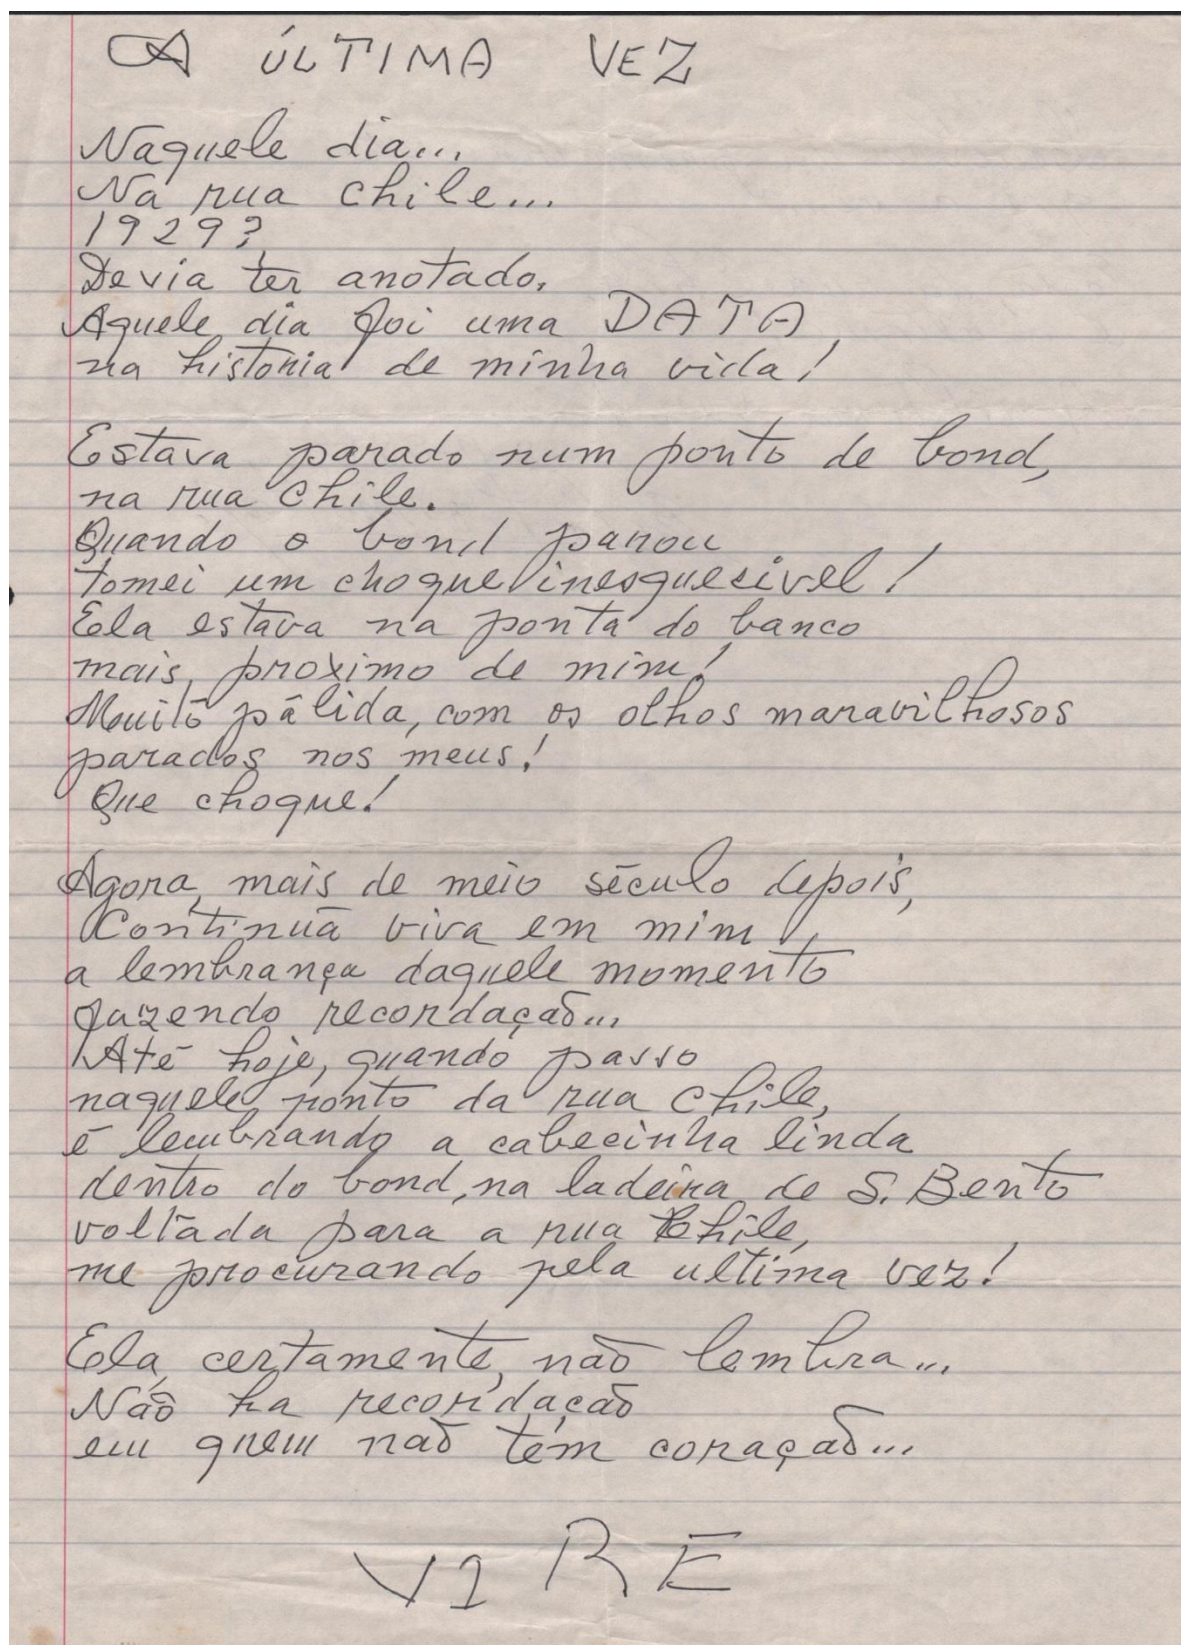 A ÚLTIMA VEZ
Naquele dia...
Na rua chile...
1929?
Devia ter anotado.
Aquele dia foi uma DATA
na historia de minha vida!
Estava parado num ponto de bond,
na rua chile.
Quando o bond parou
tomei um choque inesquecivel!
Ela estava na ponta do banco
mais proximo de mim!
Muito pálida, com os olhos maravilhosos
parados nos meus!
Que choque!
Agora, mais de meio século depois,
Continua viva em mim
a lembrança daquele momento
fazendo recordação...
Até hoje, quando passo
naquele ponto da rua chile,
é lembrando a cabecinha linda
dentro do bond, na ladeira de S. Bento
voltada para a rua Chile,
me procurando pela ultima vez!
Ela, certamente, não lembra...
Não ha recordação
em quem não tem coração...
VIRE